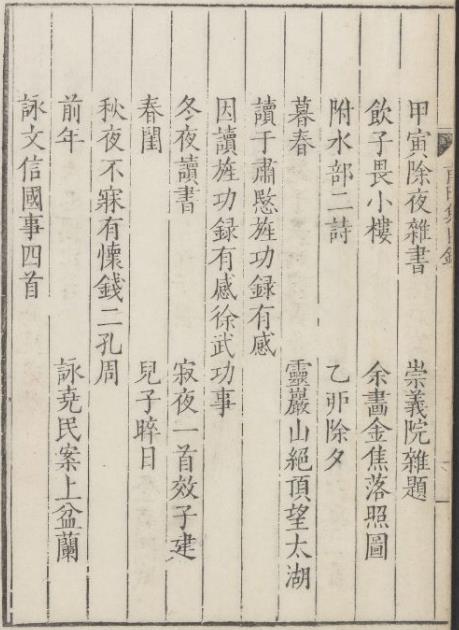 甲寅除夜雜書 崇義院雜題
飲子畏小樓 余畵金焦落照圖
附水部二詩 乙丱除夕
暮春 靈巖山絕頂望太湖
讀于肅愍旌功録有感
因讀旌功録有感徐武功事
冬夜讀書 寂夜一首效子建
春閨 兒子晬日
秋夜不寐有懷錢二孔周
前年 詠堯民案上盆蘭
詠文信國事四首